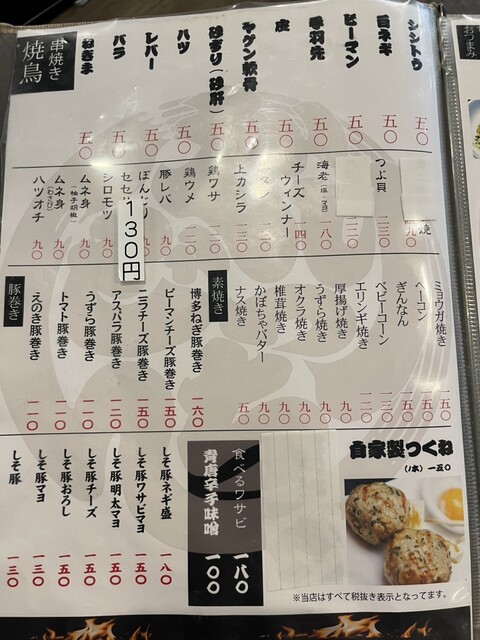 シシトウ 五〇
白ネギ 五〇
ピーマン 五〇
手羽先 五〇
皮 五〇
ヤゲン軟骨 五〇
砂ずり(砂肝) 五〇
ハツ 五〇
レバー 五〇
バラ 五〇
ねぎま 五〇
串焼き
焼鳥
おつまみ
焼 九〇
つぶ貝 二三〇
海老(塩・マヨ) 一八〇
チーズウィンナー 一四〇
上カシラ 一二〇
鶏ワサ 一二〇
鶏ウメ 一二〇
豚レバ 九〇
130円
シロモツ 九〇
ムネ身(柚子胡椒) 九〇
ムネ身(わさび) 九〇
ハツオチ 九〇
ミョウガ焼き 一五〇
ベーコン 一五〇
ぎんなん 一五〇
ベビーコーン 一二〇
エリンギ焼き 一二〇
厚揚げ焼き 九〇
うずら焼き 九〇
オクラ焼き 九〇
椎茸焼き 九〇
かぼちゃバター 九〇
ナス焼き 五〇
素焼き
博多ねぎ豚巻き 一六〇
ピーマンチーズ豚巻き 一五〇
ニラチーズ豚巻き 一五〇
アスパラ豚巻き 一二〇
うずら豚巻き 一一〇
トマト豚巻き 一一〇
えのき豚巻き 一一〇
豚巻き
自家製つくね
(1本)一五〇
食べるワサビ 一八〇
青唐辛子味噌 一〇〇
しそ豚ネギ盛 一八〇
しそ豚ワサビマヨ 一五〇
しそ豚明太マヨ 一五〇
しそ豚チーズ 一五〇
しそ豚おろし 一五〇
しそ豚マヨ 一三〇
しそ豚 一三〇
※当店はすべて税抜き表示となってます。